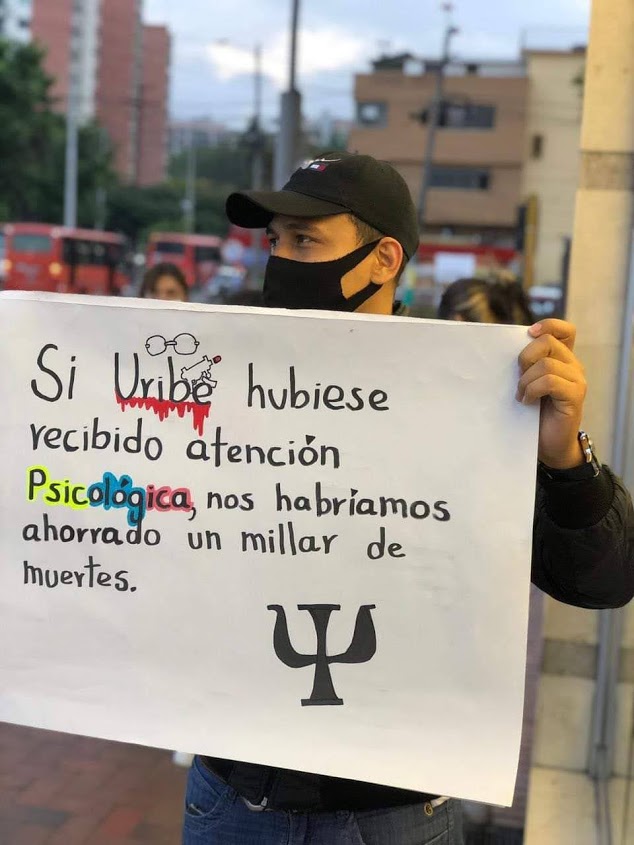 Si Uribe hubiese
recibido atención
Psicológica, nos habríamos
ahorrado un millar de
muertes.
Ψ